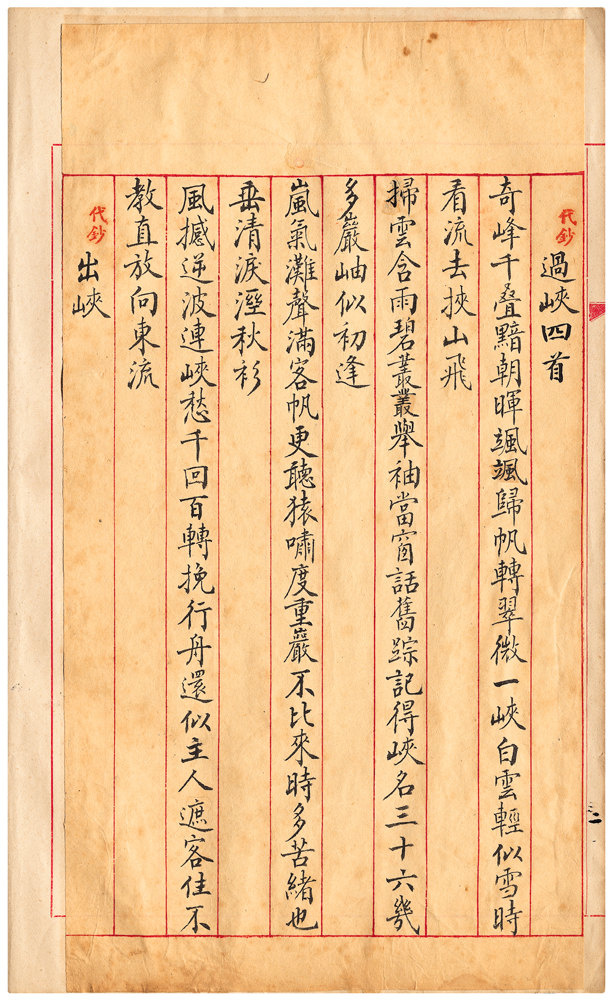 代鈔
過峽四首
奇峰千叠黯朝暉颯颯歸帆轉翠微一峽白雲輕似雪時
看流去挾山飛
掃雲含雨碧叢叢舉袖當窗話舊踪記得峽名三十六幾
多巖岫似初逢
嵐氣灘聲滿客帆更聽猿嘯度重巖不比來時多苦緒也
垂清淚溼秋衫
風撼逆波連峽愁千回百轉挽行舟還似主人遮客住不
教直放向東流
代鈔
出峽